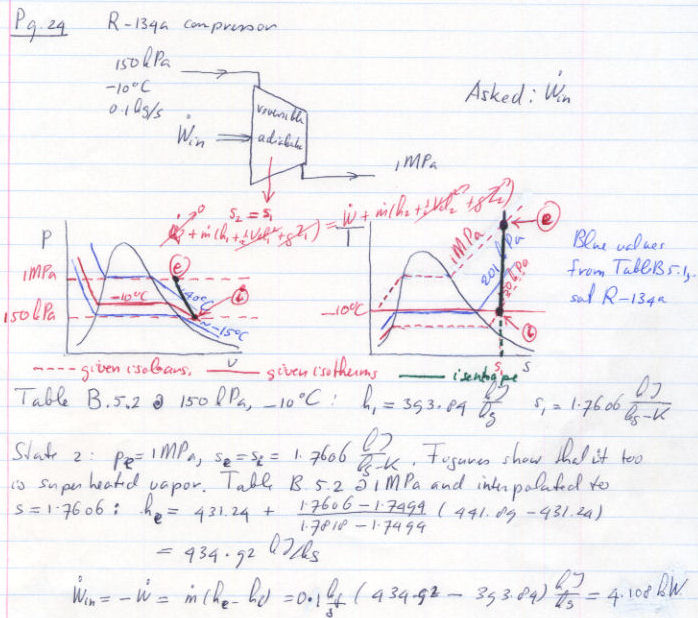 Pg. 24 R-134a compressor
150 kPa
-10°C
0.1 kg/s
Ẇin
reversible
adiabatic
1 MPa
Asked: Ẇin
s₂ = s₁
Q̇ 0 + ṁ(h₁ + ½Vel₁² + gZ₁) = Ẇ + ṁ(h₂ + ½Vel₂² + gZ₂)
P
1 MPa
150 kPa
-10°C
40°C
~-15°C
e
i
v
T
1 MPa
201 kPa
-10°C
e
i
s₁ s
Blue values
from Table B5.1,
sat R-134a
--- given isobars, — given isotherms — isentrope
Table B.5.2 @ 150 kPa, -10°C : h₁ = 393.84 kJ/kg s₁ = 1.7606 kJ/kg-K
State 2: pe = 1 MPa, se = si = 1.7606 kJ/kg-K. Figures show that it too
is superheated vapor. Table B.5.2 @ 1 MPa and interpolated to
s = 1.7606: he = 431.24 + (1.7606 - 1.7494)/(1.7818 - 1.7494) (441.89 - 431.24)
= 434.92 kJ/kg
Ẇin = -Ẇ = ṁ(he - hi) = 0.1 kg/s (434.92 - 393.84) kJ/kg = 4.108 kW